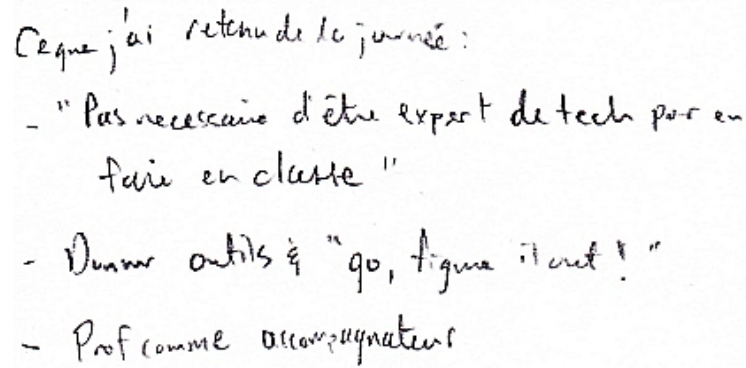 Ce que j'ai retenu de la journée :
- "Pas necessaire d'être expert de tech pour en
faire en classe"
- Donner outils & "go, figure it out !"
- Prof comme accompagnateur